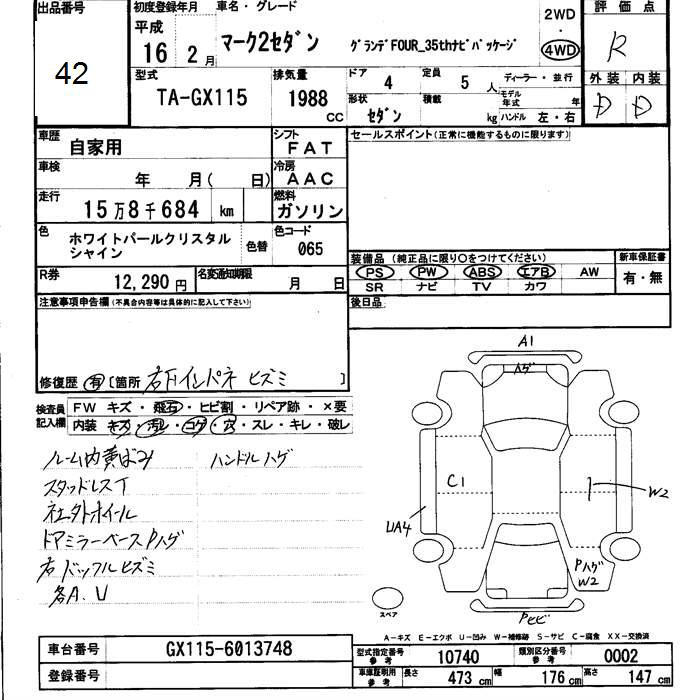 出品番号
42
初度登録年月
平成
16 2 月
車名・グレード
マーク2セダン
グランデFOUR_35thナビパッケージ
2WD
4WD
評価点
R
型式
TA-GX115
排気量
1988 CC
ドア 4
定員 5 人
形状 セダン
積載 kg
ディーラー・並行
モデル年式 年
ハンドル 左・右
外装 内装
D D
車歴
自家用
シフト
FAT
車検
年 月( 日)
冷房
AAC
走行
15万8千684 km
燃料
ガソリン
色
ホワイトパールクリスタル
シャイン
色替
色コード
065
R券
12,290 円
名変通知期限
月 日
セールスポイント(正常に機能するものに限ります)
装備品(純正品に限り〇をつけてください)
新車保証書
PS PW ABS エアB AW
有・無
SR ナビ TV カワ
後日品
注意事項申告欄(不具合内容等は具体的に記入して下さい)
修復歴 有 [箇所 右Fインパネ ヒズミ ]
検査員
記入欄
FW キズ・飛石・ヒビ割・リペア跡・×要
内装 キズ・汚レ・コゲ・穴・スレ・キレ・破レ
ルーム内黄ばみ ハンドルハゲ
スタッドレスT
社外ホイール
ドアミラーベースPハゲ
右ドッフルヒズミ
各A.U
A1
ハゲ
C1
W2
UA4
Pハゲ
W2
Pヒビ
スペア
A-キズ E-エクボ U-凹み W-補修跡 S-サビ C-腐食 XX-交換済
車台番号
GX115-6013748
登録番号
型式指定番号
参考
10740
類別区分番号
参考
0002
車庫証明用
参考
長さ 473 cm
幅 176 cm
高さ 147 cm